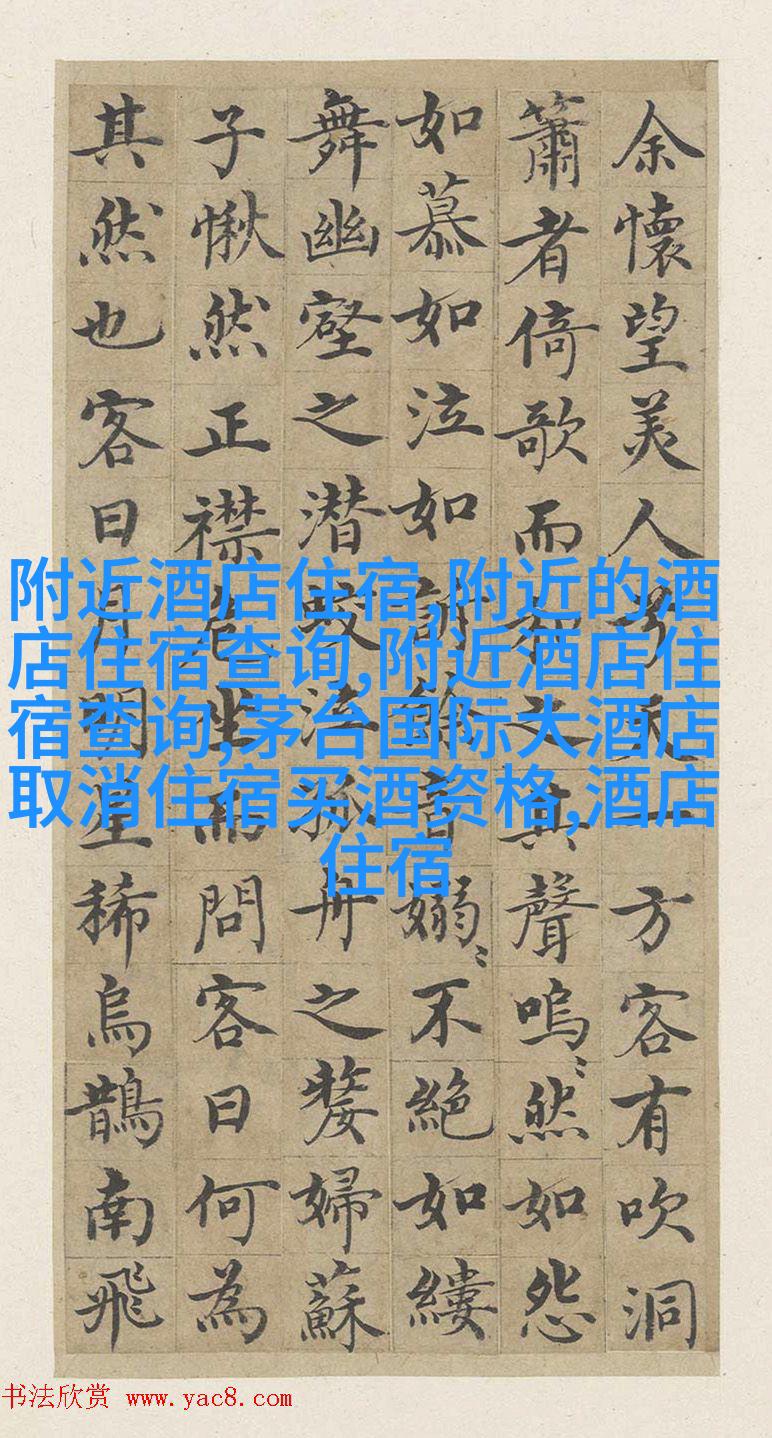 余懷望美人兮天一方客有吹洞
簫者倚歌而和之其聲嗚〻然如怨
如慕如泣如訴餘音嫋〻不絶如縷
舞幽壑之潜蛟泣孤舟之嫠婦蘇
子愀然正襟危坐而問客曰何為
其然也客曰月明星稀烏鵲南飛
附近酒店住宿,附近的酒
店住宿查询,附近酒店住
宿查询,茅台国际大酒店
取消住宿买酒资格,酒店
住宿
书法欣赏 www.yac8.com